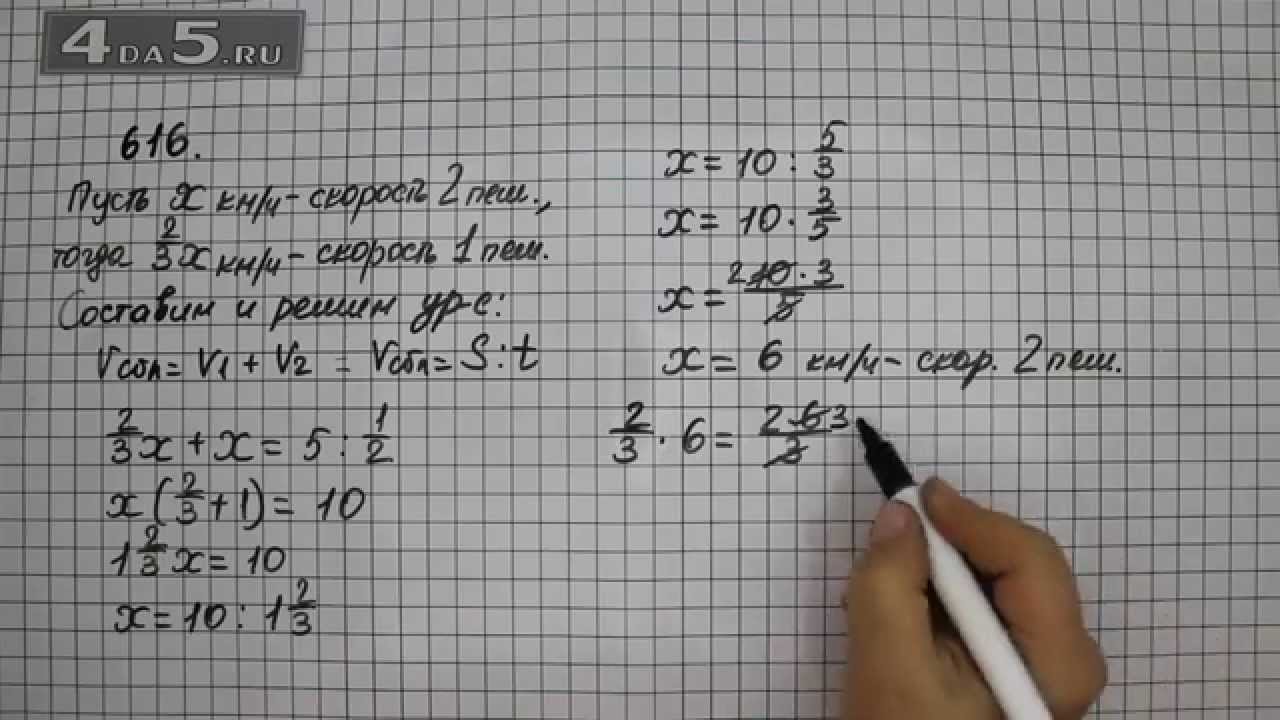 4DA5.RU
616.
Пусть x км/ч - скорость 2 пеш.,
тогда 2/3 x км/ч - скорость 1 пеш.
Составим и решим ур-е:
Vсбл = V1 + V2 = Vсбл = S : t
2/3 x + x = 5 : 1/2
x (2/3 + 1) = 10
1 2/3 x = 10
x = 10 : 1 2/3
x = 10 : 5/3
x = 10 · 3/5
x = 2 10 · 3 / 5
x = 6 км/ч - скор. 2 пеш.
2/3 · 6 = 2 · 6 3 / 3